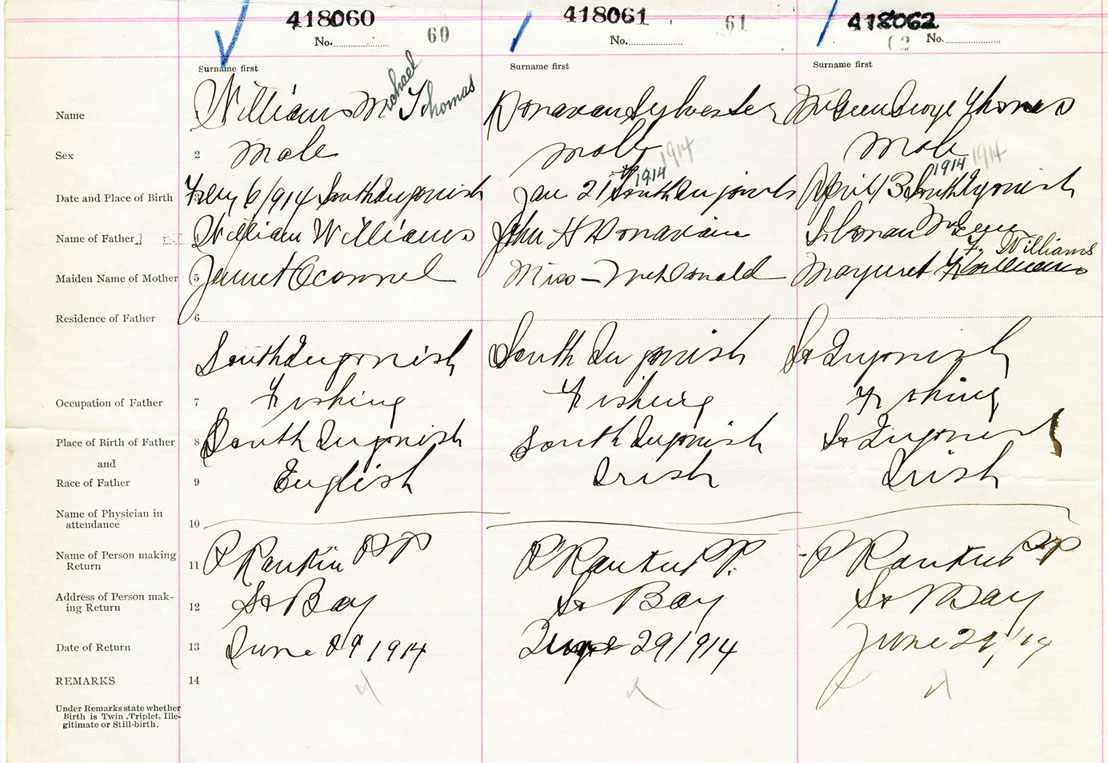 418060 418061 418062
No. 60 No. 61 62 No.
Surname first Surname first Surname first
Name Williams Michael Thomas Donavan Sylvester McGreen George Thomas
Sex 2 Male Male Male
1914 1914 1914 1914
Date and Place of Birth 6/914 South Ingonish Jan 21 South Ingonish April 13 South Ingonish
Name of Father William Williams John H Donavan
Williams
Maiden Name of Mother 5 Miss - McDonald Margaret
Residence of Father 6
South Ingonish South Ingonish So Ingonish
Occupation of Father 7 Fishing Fishing Fishing
Place of Birth of Father 8 South Ingonish South Ingonish So Ingonish
and
Race of Father 9 English Irish Irish
Name of Physician in
attendance 10
Name of Person making
Return 11 Rankin PP Rankin P.P. Rankin PP
Address of Person mak-
ing Return 12 So Bay So Bay So Bay
Date of Return 13 June 29 1914 June 29 1914 June 29/14
REMARKS 14
Under Remarks state whether
Birth is Twin, Triplet, Ille-
gitimate or Still-birth.